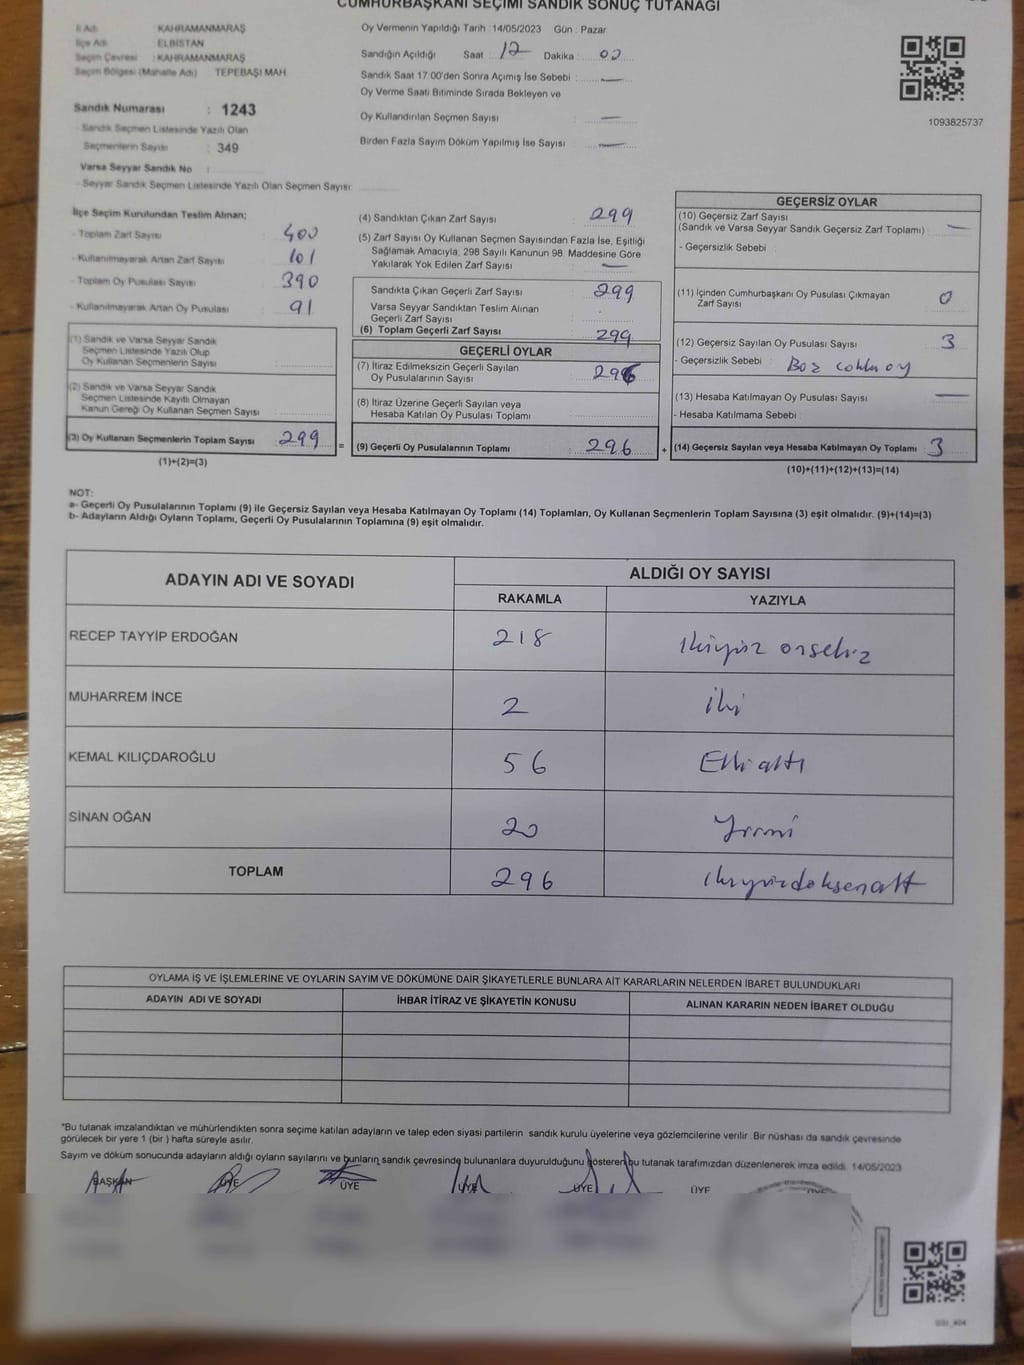 CUMHURBAŞKANI SEÇİMİ SANDIK SONUÇ TUTANAĞI
İl Adı KAHRAMANMARAŞ
İlçe Adı ELBİSTAN
Seçim Çevresi : KAHRAMANMARAŞ
Seçim Bölgesi (Mahalle Adı) TEPEBAŞI MAH.
Sandık Numarası : 1243
- Sandık Seçmen Listesinde Yazılı Olan
Seçmenlerin Sayısı : 349
Varsa Seyyar Sandık No :
- Seyyar Sandık Seçmen Listesinde Yazılı Olan Seçmen Sayısı:
Oy Vermenin Yapıldığı Tarih : 14/05/2023 Gün : Pazar
Sandığın Açıldığı Saat : 17 Dakika : 02
Sandık Saat 17.00'den Sonra Açılmış İse Sebebi : —
Oy Verme Saati Bitiminde Sırada Bekleyen ve
Oy Kullandırılan Seçmen Sayısı : —
Birden Fazla Sayım Döküm Yapılmış İse Sayısı : —
1093825737
İlçe Seçim Kurulundan Teslim Alınan;
- Toplam Zarf Sayısı : 400
- Kullanılmayarak Artan Zarf Sayısı : 101
- Toplam Oy Pusulası Sayısı : 390
- Kullanılmayarak Artan Oy Pusulası : 91
(1) Sandık ve Varsa Seyyar Sandık
Seçmen Listesinde Yazılı Olup
Oy Kullanan Seçmenlerin Sayısı :
(2) Sandık ve Varsa Seyyar Sandık
Seçmen Listesinde Kayıtlı Olmayan
Kanun Gereği Oy Kullanan Seçmen Sayısı :
(3) Oy Kullanan Seçmenlerin Toplam Sayısı : 299
(1)+(2)=(3)
(4) Sandıktan Çıkan Zarf Sayısı : 299
(5) Zarf Sayısı Oy Kullanan Seçmen Sayısından Fazla İse, Eşitliği
Sağlamak Amacıyla, 298 Sayılı Kanunun 98. Maddesine Göre
Yakılarak Yok Edilen Zarf Sayısı : —
Sandıkta Çıkan Geçerli Zarf Sayısı : 299
Varsa Seyyar Sandıktan Teslim Alınan
Geçerli Zarf Sayısı :
(6) Toplam Geçerli Zarf Sayısı : 299
GEÇERLİ OYLAR
(7) İtiraz Edilmeksizin Geçerli Sayılan
Oy Pusulalarının Sayısı : 296
(8) İtiraz Üzerine Geçerli Sayılan veya
Hesaba Katılan Oy Pusulası Toplamı :
= (9) Geçerli Oy Pusulalarının Toplamı : 296
GEÇERSİZ OYLAR
(10) Geçersiz Zarf Sayısı
(Sandık ve Varsa Seyyar Sandık Geçersiz Zarf Toplamı) : —
- Geçersizlik Sebebi :
(11) İçinden Cumhurbaşkanı Oy Pusulası Çıkmayan
Zarf Sayısı : 0
(12) Geçersiz Sayılan Oy Pusulası Sayısı : 3
- Geçersizlik Sebebi :
(13) Hesaba Katılmayan Oy Pusulası Sayısı : —
- Hesaba Katılmama Sebebi :
+ (14) Geçersiz Sayılan veya Hesaba Katılmayan Oy Toplamı : 3
(10)+(11)+(12)+(13)=(14)
NOT:
a- Geçerli Oy Pusulalarının Toplamı (9) ile Geçersiz Sayılan veya Hesaba Katılmayan Oy Toplamı (14) Toplamları, Oy Kullanan Seçmenlerin Toplam Sayısına (3) eşit olmalıdır. (9)+(14)=(3)
b- Adayların Aldığı Oyların Toplamı, Geçerli Oy Pusulalarının Toplamına (9) eşit olmalıdır.
ADAYIN ADI VE SOYADI ALDIĞI OY SAYISI
RAKAMLA YAZIYLA
RECEP TAYYİP ERDOĞAN 218 ikiyüz onsekiz
MUHARREM İNCE 2 iki
KEMAL KILIÇDAROĞLU 56 Elli altı
SİNAN OĞAN 20 Yirmi
TOPLAM 296 ikiyüzdoksenaltı
OYLAMA İŞ VE İŞLEMLERİNE VE OYLARIN SAYIM VE DÖKÜMÜNE DAİR ŞİKAYETLERLE BUNLARA AİT KARARLARIN NELERDEN İBARET BULUNDUKLARI
ADAYIN ADI VE SOYADI İHBAR İTİRAZ VE ŞİKAYETİN KONUSU ALINAN KARARIN NEDEN İBARET OLDUĞU
*Bu tutanak imzalandıktan ve mühürlendikten sonra seçime katılan adayların ve talep eden siyasi partilerin sandık kurulu üyelerine veya gözlemcilerine verilir. Bir nüshası da sandık çevresinde
görülecek bir yere 1 (bir ) hafta süreyle asılır.
Sayım ve döküm sonucunda adayların aldığı oyların sayılarını ve bunların sandık çevresinde bulunanlara duyurulduğunu gösteren bu tutanak tarafımızdan düzenlenerek imza edildi. 14/05/2023
BAŞKAN ÜYE ÜYE ÜYE ÜYE ÜYE ÜYE